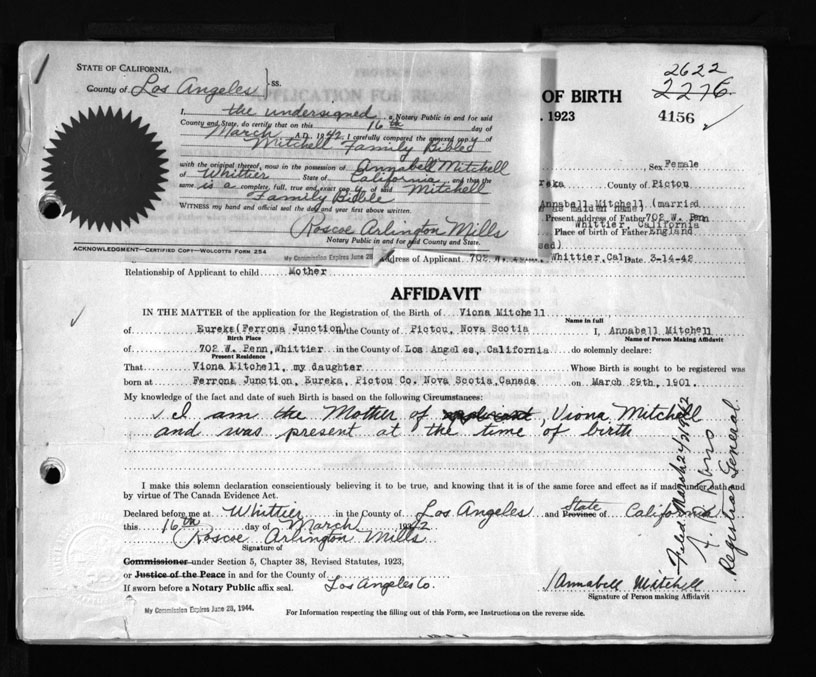 1
STATE OF CALIFORNIA,
County of Los Angeles } ss.
I, the undersigned, a Notary Public in and for said
County and State, do certify that on this 16th day of
March A.D. 1942 I carefully compared the annexed copy of
Mitchell Family Bible
with the original thereof, now in the possession of Annabell Mitchell
of Whittier State of California and that the
same is a complete, full, true and exact copy of said Mitchell
Family Bible
WITNESS my hand and official seal the day and year first above written.
Roscoe Arlington Mills
Notary Public in and for said County and State.
ACKNOWLEDGMENT—CERTIFIED COPY—WOLCOTTS FORM 254
My Commission Expires June 28
OF BIRTH
1923
2622
2276
4156
Sex Female
reka County of Pictou
Annabell Mitchell (married
as maiden name)
Present address of Father 702 W. Penn
Whittier, California
Place of birth of Father England
sed)
ddress of Applicant 702 W. Whittier, Cal Date 3-14-42
Relationship of Applicant to child Mother
AFFIDAVIT
IN THE MATTER of the application for the Registration of the Birth of Viona Mitchell
Name in full
of Eureka(Ferrona Junction) in the County of Pictou, Nova Scotia I, Annabell Mitchell
Birth Place Name of Person Making Affidavit
of 702 W. Penn, Whittier in the County of Los Angeles, California do solemnly declare:
Present Residence
That Viona Mitchell, my daughter Whose Birth is sought to be registered was
born at Ferrona Junction, Eureka, Pictou Co. Nova Scotia, Canada on March 29th, 1901.
My knowledge of the fact and date of such Birth is based on the following Circumstances:
I am the Mother of applicant, Viona Mitchell
and was present at the time of birth
I make this solemn declaration conscientiously believing it to be true, and knowing that it is of the same force and effect as if made under oath and
by virtue of The Canada Evidence Act.
Declared before me at Whittier in the County of Los Angeles and State Province of California
this 16th day of March 1942
Roscoe Arlington Mills
Signature of
Commissioner under Section 5, Chapter 38, Revised Statutes, 1923,
or Justice of the Peace in and for the County of Los Angeles Co.
If sworn before a Notary Public affix seal.
Annabell Mitchell
Signature of Person making Affidavit
My Commission Expires June 28, 1944.
For Information respecting the filling out of this Form, see Instructions on the reverse side.
Filed March 24 1942
Registrar General